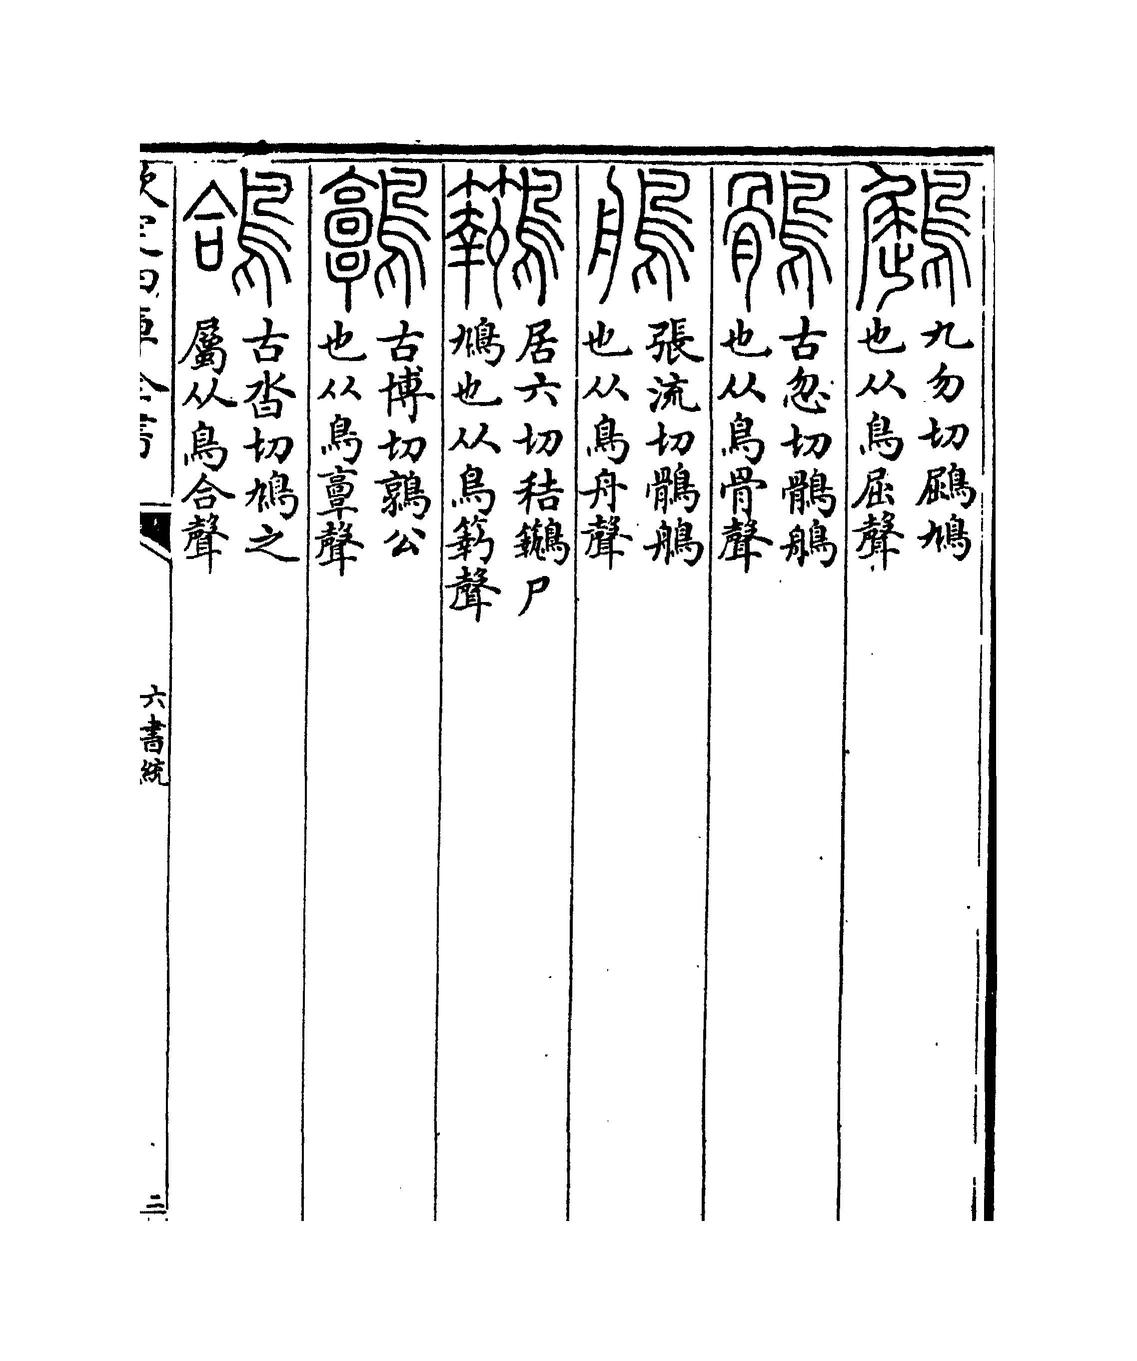 鶌
九勿切鶌鳩
也从鳥屈聲
鶻
古忽切鶻鵃
也从鳥骨聲
鵃
張流切鶻鵃
也从鳥舟聲
居六切秸鵴尸
鳩也从鳥𥷚聲
古博切鶉公
也从鳥𩫖聲
鴿
古沓切鳩之
屬从鳥合聲
欽定四庫全書
六書統